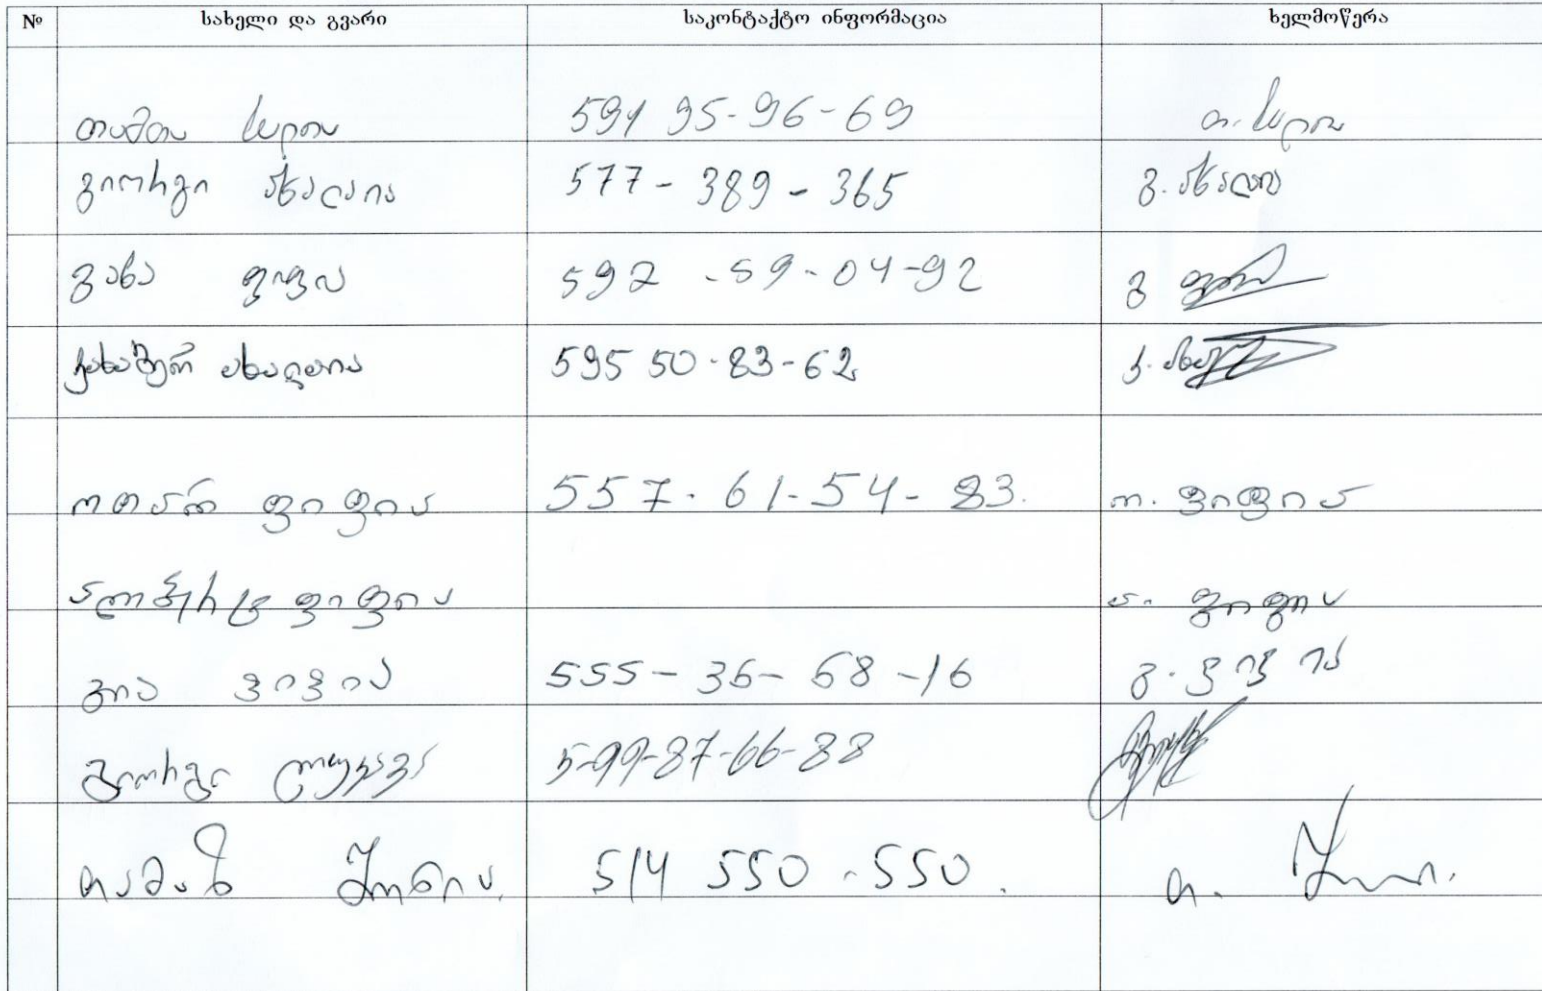 № სახელი და გვარი საკონტაქტო ინფორმაცია ხელმოწერა
თამთა 591 95-96-69 თ.
გიორგი ახალაია 577-389-365 გ. ახალაია
ვახა ფიფია 592-59-04-92 ვ
ახალაია 595 50-83-62
ოთარ ფიფია 557-61-54-83. ო. ფიფია
ალბერტ ფიფია ა. ფიფია
გია ფიფია 555-36-68-16 გ. ფიფია
გიორგი ლუკავა 5-99-87-66-88
თამაზ შონია. 514 550-550. თ.